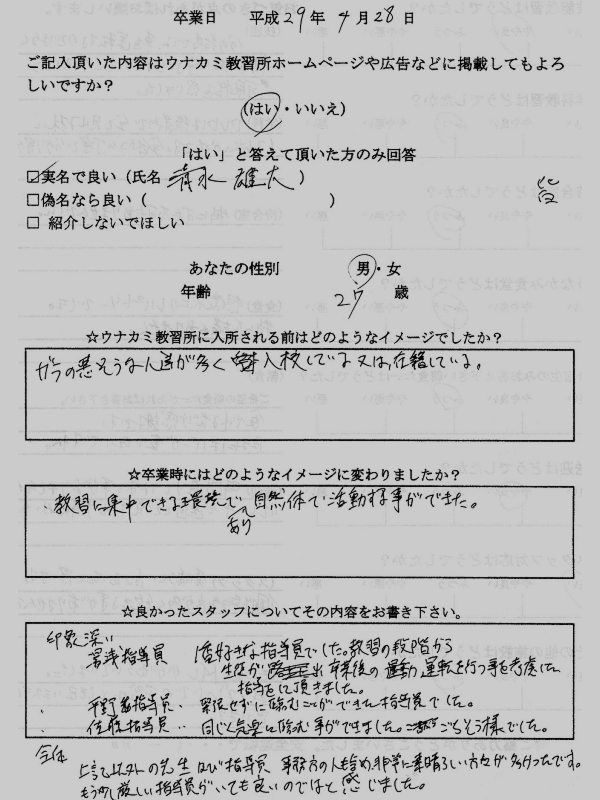 卒業日 平成29年 4月28日
ご記入頂いた内容はウナカミ教習所ホームページや広告などに掲載してもよろ
しいですか？
（はい・いいえ）
「はい」と答えて頂いた方のみ回答
☑実名で良い（氏名 清水 雄太）
□偽名なら良い（ ）
□ 紹介しないでほしい
あなたの性別 男・女
年齢 27 歳
☆ウナカミ教習所に入所される前はどのようなイメージでしたか？
ガラの悪そうな人達が多く 入校している又は、在籍している。
☆卒業時にはどのようなイメージに変わりましたか？
・教習に集中できる環境であり 自然体で活動する事ができた。
☆良かったスタッフについてその内容をお書き下さい。
印象深い
指導員 1番好きな指導員でした。教習の段階から
生徒が 卒業後の運動、運転を行う事を考慮した
指導をして頂きました。
・ 平野 指導員・ 緊張せずに臨むことができた指導員でした。
・ 佐藤指導員・・ 同じく気楽に臨む事ができました。 ごちそう様でした。
全体
上記以外の先生及び指導員 事務方の人も含め、非常に素晴らしい方々が多かったです。
もう少し厳しい指導員がいても良いのではと感じました。